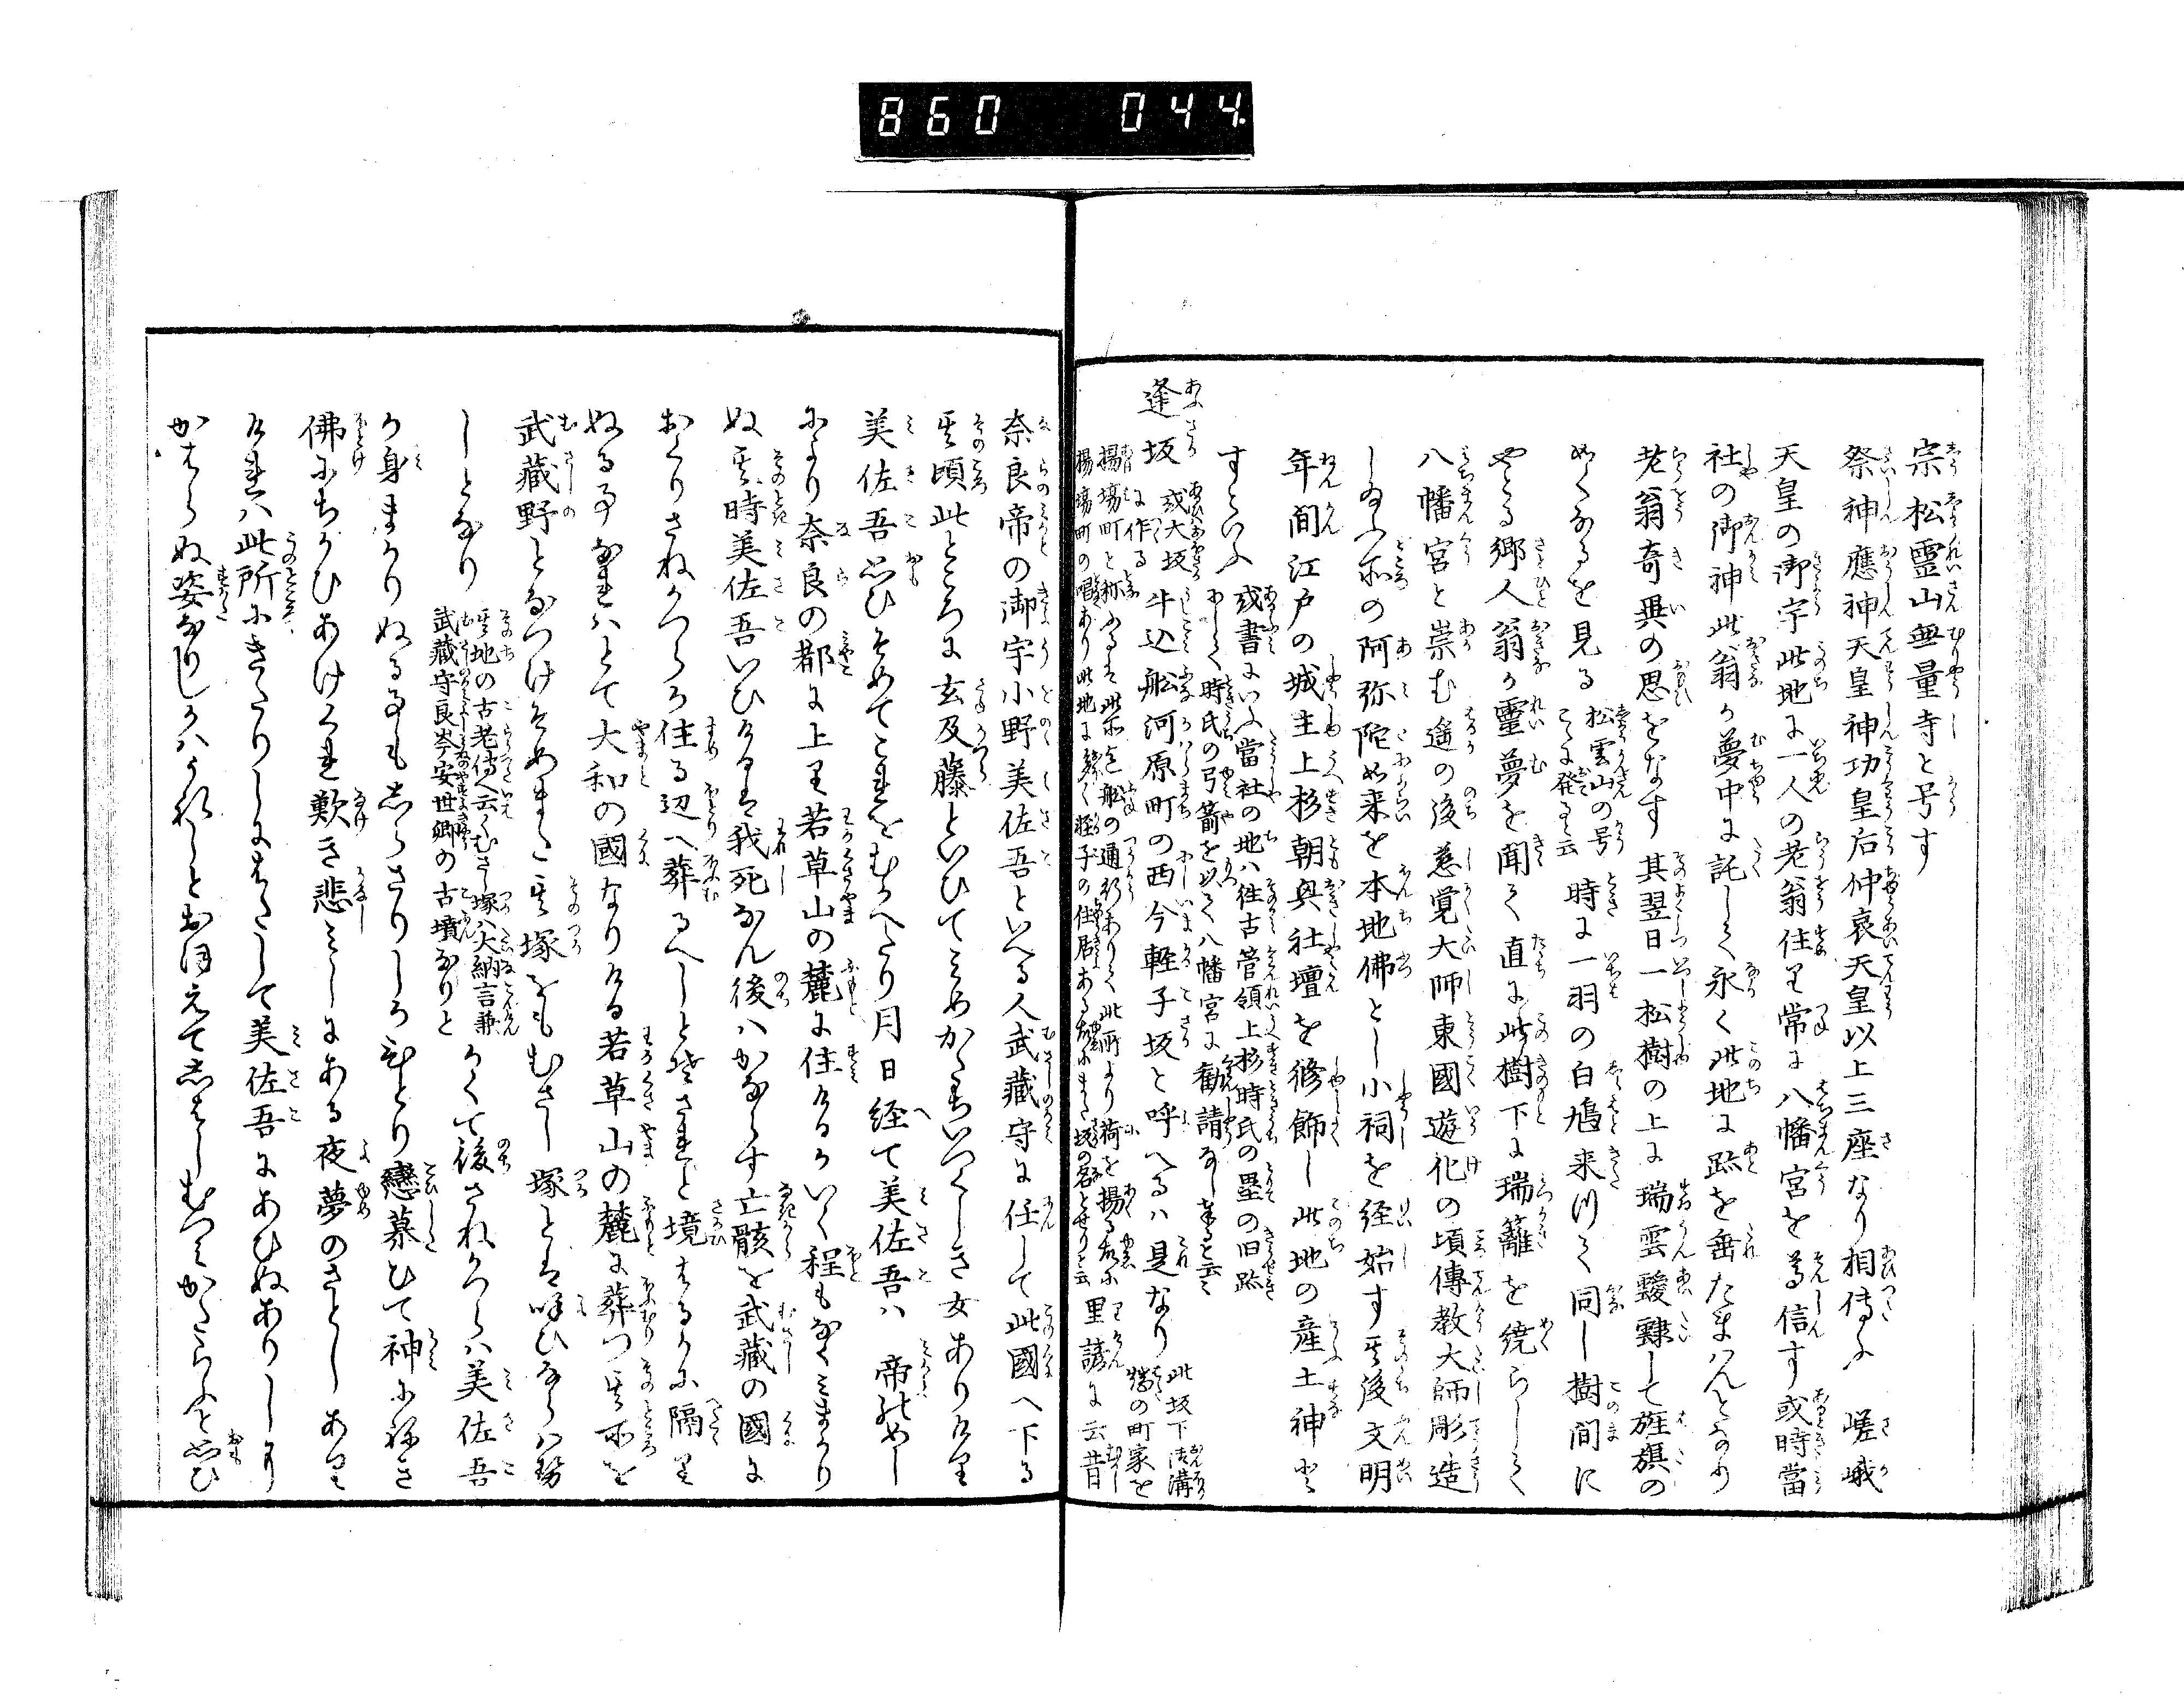 860 044.
宗松靈山無量寺と号す
祭神應神天皇神功皇后仲哀天皇以上三座なり相傳ふ嵯峨
天皇の御宇此地に一人の老翁住り常に八幡宮を尊信す或時當
社の御神此翁か夢中に託して永く此地に跡を垂たまはんとなり
老翁奇異の思をなす其翌日一松樹の上に瑞雲靉靆して旌旗の
如くなるを見る松雲山の号こゝに発ると云時に一羽の白鳩来つて同し樹間に
やとる郷人翁か靈夢を聞て直に此樹下に瑞籬を繞らして
八幡宮と崇む遥の後慈覚大師東國遊化の頃傳教大師彫造
し給ふ所の阿弥陀如来を本地佛とし小祠を経始す其後文明
年間江戸の城主上杉朝興社壇を修飾し此地の産土神と
すといふ或書にいふ當社の地ハ往古管領上杉時氏の塁の旧跡にして時氏の弓箭を以て八幡宮に勧請なし奉ると云々
逢坂或大坂に作る牛込船河原町の西今軽子坂と呼へるハ是なり此坂下御溝端の町家を
揚場町と称ふるは此所は船の通行ありて此所より荷を揚る故に里諺に云昔
揚場町の唱あり此地に軽子の住居ある故にまた坂の名とせりと云
奈良帝の御宇小野美佐吾といへる人武藏守に任して此國へ下る
其頃此ところに玄及藤といひてみめかたちいつくしき女ありけり
美佐吾思ひそめてこれをむかへたり月日経て美佐吾ハ帝のめし
により奈良の都に上り若草山の麓に住けるかいく程もなくみまかり
ぬ其時美佐吾いひけるは我死なん後ハかならす亡骸を武藏の國に
おくりさねかつらか住る辺へ葬るへしと
ぬる事なれハとて大和の國なりける若草山の麓に葬つ其所を
武藏野となつけそめまた其塚をもむさし塚とは呼ひならハせ
しとなり其地の古老傳へ云くむさし塚ハ大納言兼武藏守良岑安世卿の古墳なりとかくて後さねかつらハ美佐吾
か身まかりぬる事もしらさりしかひとり戀慕ひて神に祈き
佛にちかひあけくれ歎き悲しみしにある夜夢のさとしあり
けれハ此所にきたりしにはたして美佐吾にあひぬありしに
かはらぬ姿なりしかハうれしとおほえてしはしむつみかたらふと思ひ